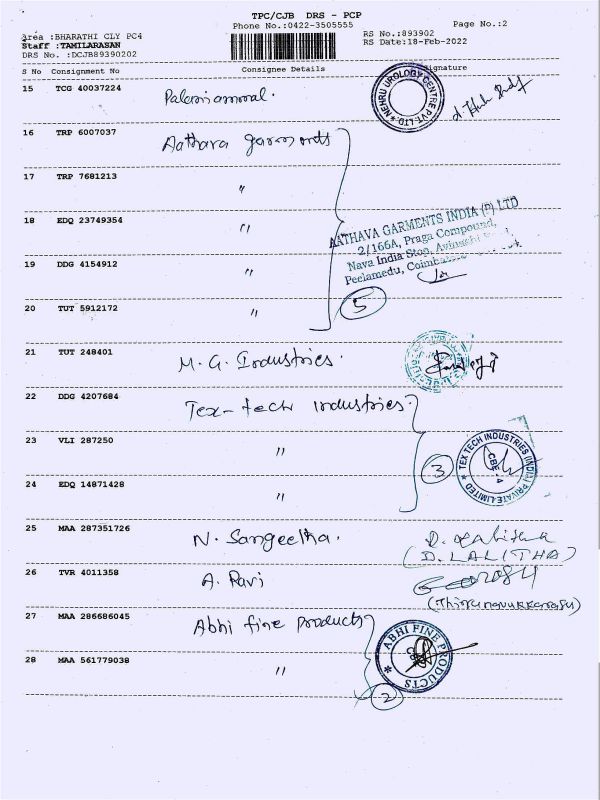 TPC/CJB DRS - PCP
Phone No.:0422-3505555
Page No.:2
Area :BHARATHI CLY PC4
Staff :TAMILARASAN
DRS No. :DCJB89390202
RS No.:893902
RS Date:18-Feb-2022
S No Consignment No Consignee Details Signature
15 TCG 40037224 Palaniammal.
NEHRU UROLOGY CENTRE PVT. LTD
16 TRP 6007037 Aathava garments
17 TRP 7681213 "
18 EDQ 23749354 "
AATHAVA GARMENTS INDIA (P) LTD
2/166A, Praga Compound,
Nava India Stop,
Peelamedu,
19 DDG 4154912 "
20 TUT 5912172 "
5
21 TUT 248401 M.G. Industries.
22 DDG 4207684 Tex-tech industries.
23 VLI 287250 "
3
TEX TECH INDUSTRIES (INDIA) PRIVATE LIMITED
CBE - 4
24 EDQ 14871428 "
25 MAA 287351726 N. Sangeetha.
D. Lalitha
(D. LALITHA)
26 TVR 4011358 A. Ravi
(Thirunavukkarasu)
27 MAA 286686045 Abhi fine products
ABHI FINE PRODUCTS
28 MAA 561779038 "
2